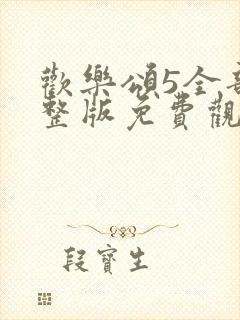 歡樂頌5全
整版免費觀
段寶生